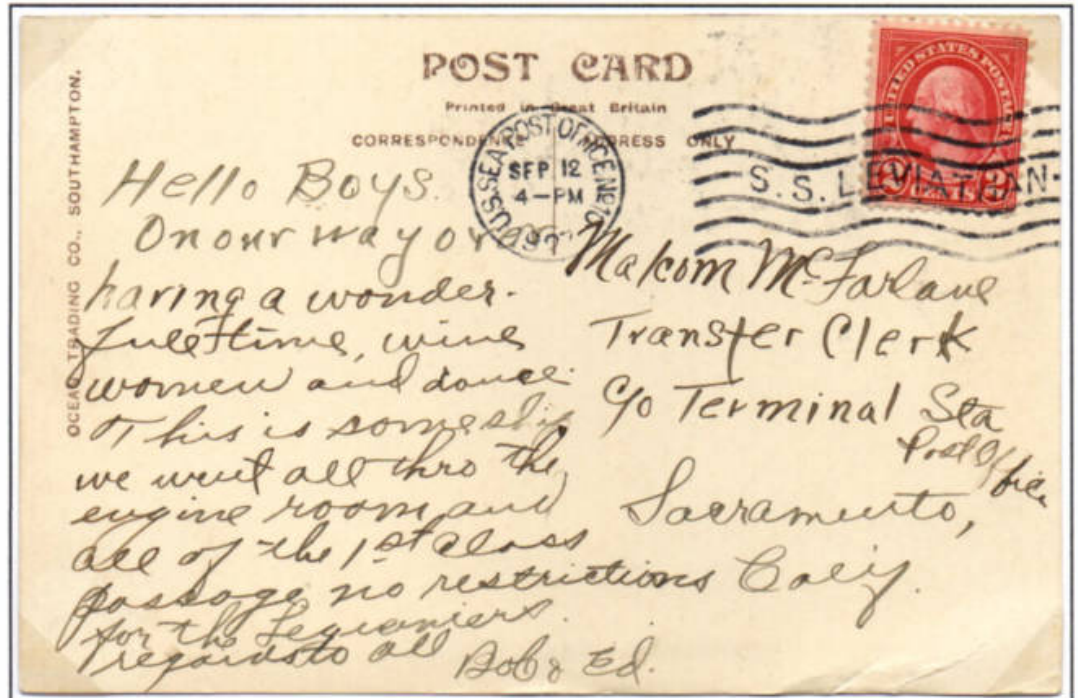 POST CARD
Printed in Great Britain
CORRESPONDENCE ADDRESS ONLY
OCEAN TRADING CO., SOUTHAMPTON.
U.S. SEA POST OFFICE No 10
SEP 12
4-PM
192
S.S. LEVIATHAN
UNITED STATES POSTAGE
2 CENTS 2
Hello Boys.
On our way over
having a wonder-
full time, wine
women and dance.
This is some ship
we went all thro the
engine room and
all of the 1st class
passage no restrictions
for the Legioniers.
regards to all
Bob & Ed.
Malcom McFarlane
Transfer Clerk
c/o Terminal Sta
Post Office
Sacramento,
Calif.